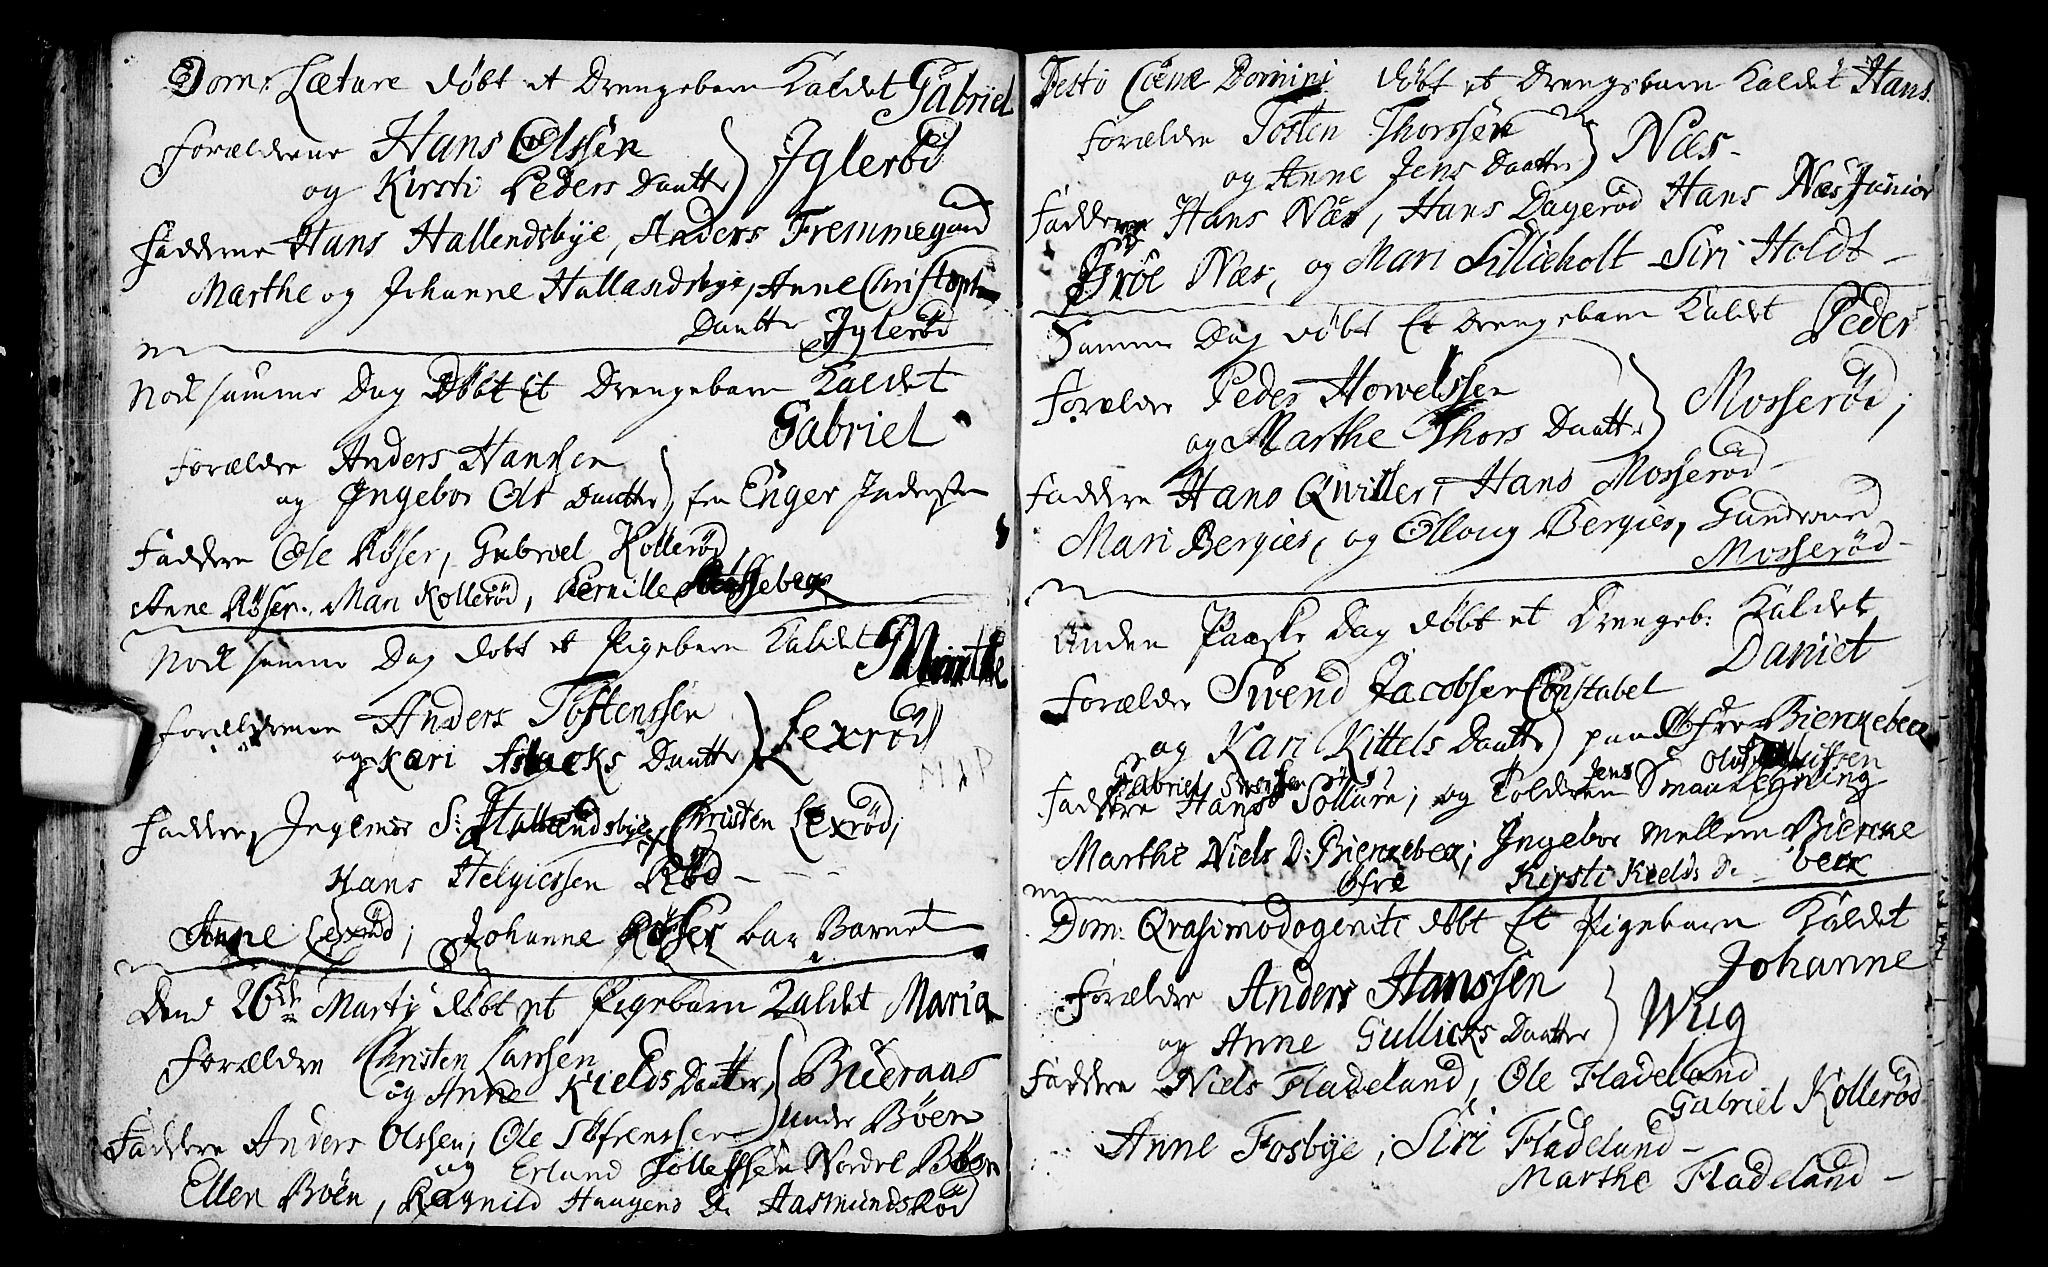 Dom: Læture døbt et Drengebarn Kaldet Gabriel
Forældrene Hans Olssen
og Kirsti Peders Daatter } Iglerød
Faddrene Hans Hallendsbye, Anders Fremmegaard
Marthe og Johanne Hallandsbye, Anne Christophers
Daatter Iglerød
Nock samme Dag Døbt Et Drengebarn Kaldet
Gabriel
Forældre Anders Hanssen
og Ingebor Ols Daatter } fra Enger Inderste
Faddere Ole Røser, Gabriel Kollerød
Anne Røser, Mari Kollerød, Pernille
Nock samme Dag døbt et Pigebarn Kaldet Marthe
Forældrene Anders Tostenssen
og Kari Aslacks Daatter } Lexrød
Faddere Ingemor S: Hallendsbye, Christen Lexrød,
Hans Helgiessen Rød
Anne Lexrød; Johanne Røser bar Barnet
Dend 26de Martj døbt et Pigebarn Kaldet Maria
Forældre Christen Larssen
og Anne Kields Daatter } Bueraas
under Bøen
Faddere Anders Olssen, Ole Søfrenssen
og Erland Jollefssen Nordre Bøen
Ellen Bøen, Ragnild Haagens D. Aasmundsrød
Festo Coenæ Domini døbt et Drengebarn Kaldet Hans
Forældre Tosten Thorssen
og Anne Jens Daatter } Næs
Faddere Hans Næs, Hans Dagerød Hans Næs Junior
Groe Næs, og Mari Lillieholt Siri Holdt
Samme Dag døbt Et Drengebarn Kaldet Peder
Forældre Peder Howelssen
og Marthe Thors Daatter } Mosserød;
Faddere Hans Qviller, Hans Mosserød
Mari Bergies, og Olloug Bergies, Gundvord
Mosserød
Anden Paaske Dag døbt et Drengeb: Kaldet
Daniel
Forældre Svend Jacobsen Constabel
og Kari Kittels Daatter } paa Øfre Bierckebeck
Gabriel Svenssen Oluf
Faddere Hans Sollum; og Tolderen Jens Smaa
Marthe Niels D: Bierckebeck; Ingebor mellem Biercke
Øfre Kirsti Kields D. beck
Dom: Qvasimodogeniti døbt Et Pigebarn Kaldet
Johanne
Forældre Anders Hanssen
og Anne Gullicks Daatter } Wiig
Faddere Niels Fladeland, Ole Fladeland
Gabriel Kollerød
Anne Fosbye, Siri Fladeland
Marthe Fladeland